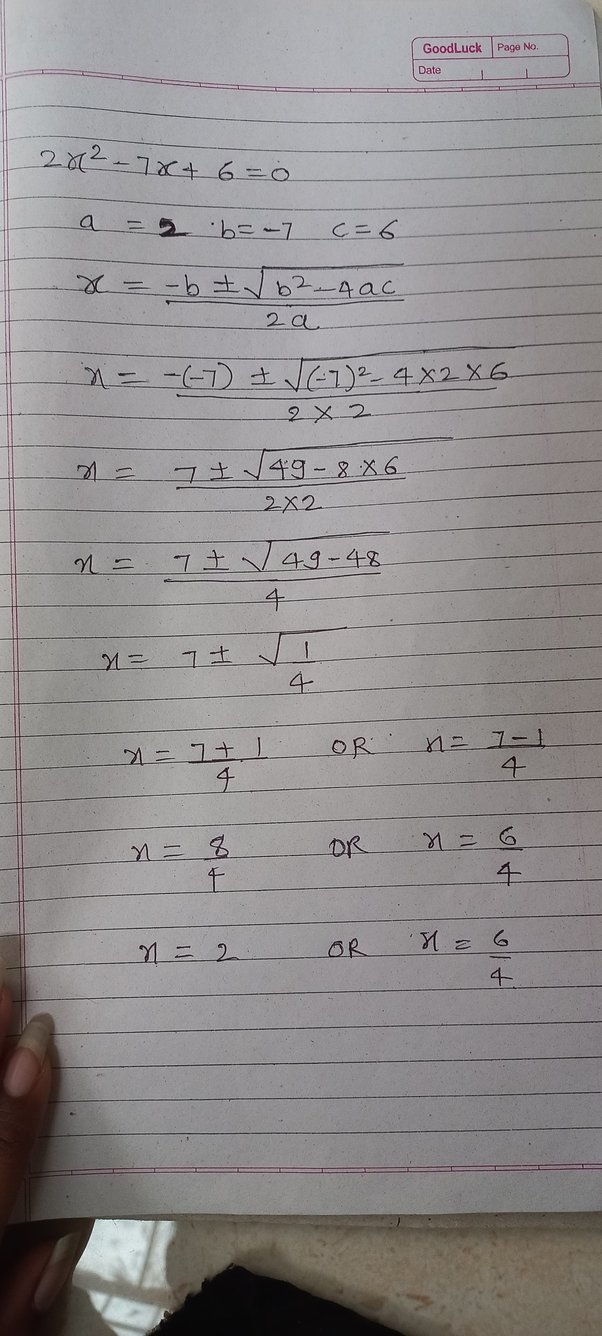 GoodLuck Page No.
Date
2x² - 7x + 6 = 0
a = 2 b = -7 c = 6
x = -b ± √b² - 4ac
2a
x = -(-7) ± √(-7)² - 4 × 2 × 6
2 × 2
x = 7 ± √49 - 8 × 6
2×2
x = 7 ± √49 - 48
4
x = 7 ± √1
4
x = 7 + 1 OR x = 7 - 1
4 4
x = 8 OR x = 6
4 4
x = 2 OR x = 6
4